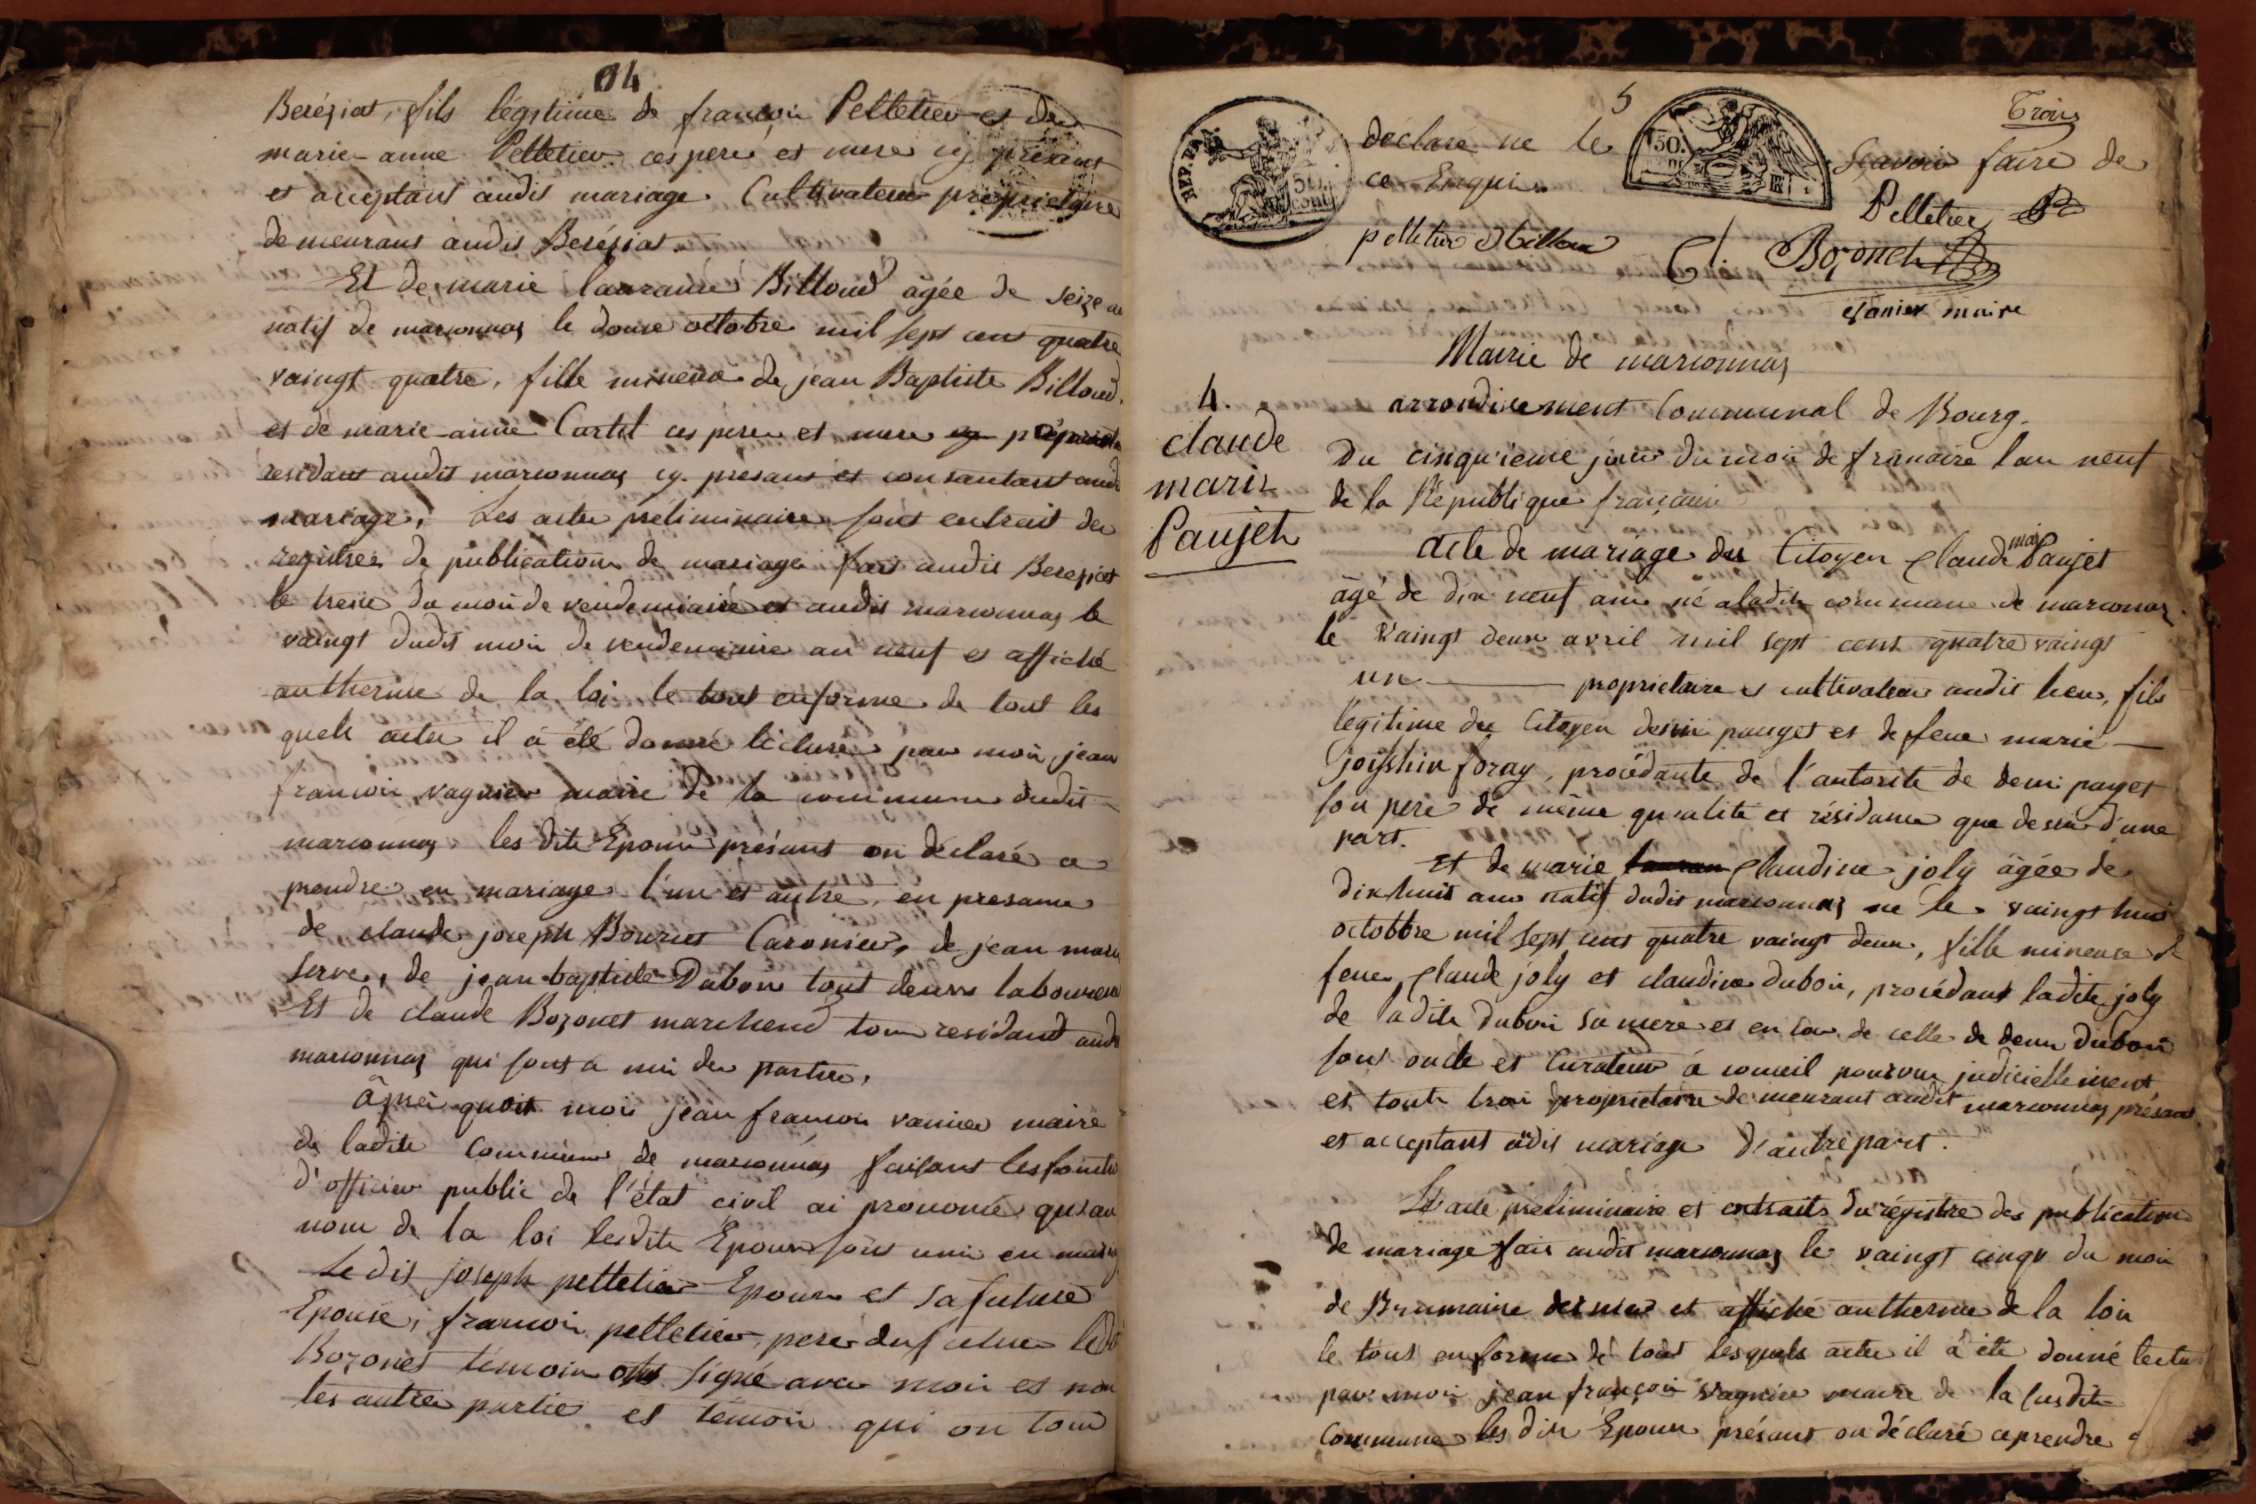 04
Beréziat, fils légitime de francoin Pelletier et de
marie-anne Pelletier ces pere et mere icy présant
et acceptant audit mariage. Cultivateur propriétaire
demeurant audit Beréziat.
Et de marie laurance Billoud âgée de seize an
natif de marsonnas le douze octobre mil sept cent quatre
vaingt quatre, fille mineure de jean Baptiste Billoud,
et de marie-anne Cartil ces pere et mere
residant audit marsonnas icy présant et consantant audit
mariage. Les acte preliminaire sont extrait des
registrer de publication de mariage fait audit Bereziat
le treize du moi de vendemiaire et audit marsonnas le
vaingt dudit moi de vendemiaire an neuf et affiché
autherme de la loi le tout enforme de tout les
quels actes il á été donné lecture par moi jean
francoin vagnier maire de la commune dudit
marsonnas les dits Epoux présant on déclaré ce
prendre en mariage l'un et autre, en presance
de claude joseph Bouvret Caronier, de jean marie
serve, de jean baptiste Dubois tout deux laboureur
Et de claude Bozonet marchend tous residant audit
marsonnas qui sont a mi des parties,
âprei quoit moi jean francoin vanier maire
de ladite commune de marsonnas faisant les fonction
d'officier public de l'état civil ai prononcé qu'au
nom de la loi lesdits Epoux sont uni en mariage
Le dit joseph pelletier Epoux et sa future
Epouse, francoin pelletier, pere du futur ledit
Bozonet témoin ont signé avec moi et non
les autres parties et témoin qui on tous
5
Trois
déclaré ne le scavoir faire de
ce Enqui.
REP. FRA.
50. cent
150.
Pelletier
pelletier Billoux Cl. Bozonet
vanier maire
Mairie de marsonnas
arrondicement Communal de Bourg.
4.
claude
marie
Paujet
Du cinquieme jour du moi de frimaire l'an neuf
de la Republique française
Acte de mariage du Citoyen Claude mari Paujet
âgé de dix neuf ans né aladite commune de marsonnas
le vaingt deux avril mil sept cent quatre vaingt
un propriétaire et cultivateur audit lieu, fils
légitime du Citoyen denis pauget et de feue marie
foray, procédante de l'autorité de deni payet
son pere de même qualité et résidance que dessu d'une
part.
Et de marie Claudine joly âgée de
dix huit ans natif dudit marsonnas ne le vaingt huit
octobre mil sept cent quatre vaingt deux, fille mineure de
feue Claude joly et claudine duboi, procédant ladite joly
de ladite duboi sa mere et en de celle de denis duboi
son oncle et curateur á conseil pourvu judiciellement
et touts troi propriétaire demeurant audit marsonnas présant
et acceptant audit mariage d'autre part.
L'acte preliminaire et extraits du régistre des publication
de mariage fait audit marsonnas le vaingt cinq du moi
de Brumaire dernier et affiché autherme de la loi
le tout enforme dé tout lesquels actes il á été donné lecture
par moi jean françoin vagnier maire de la susdite
commune les dits Epoux présant on déclaré ceprendre